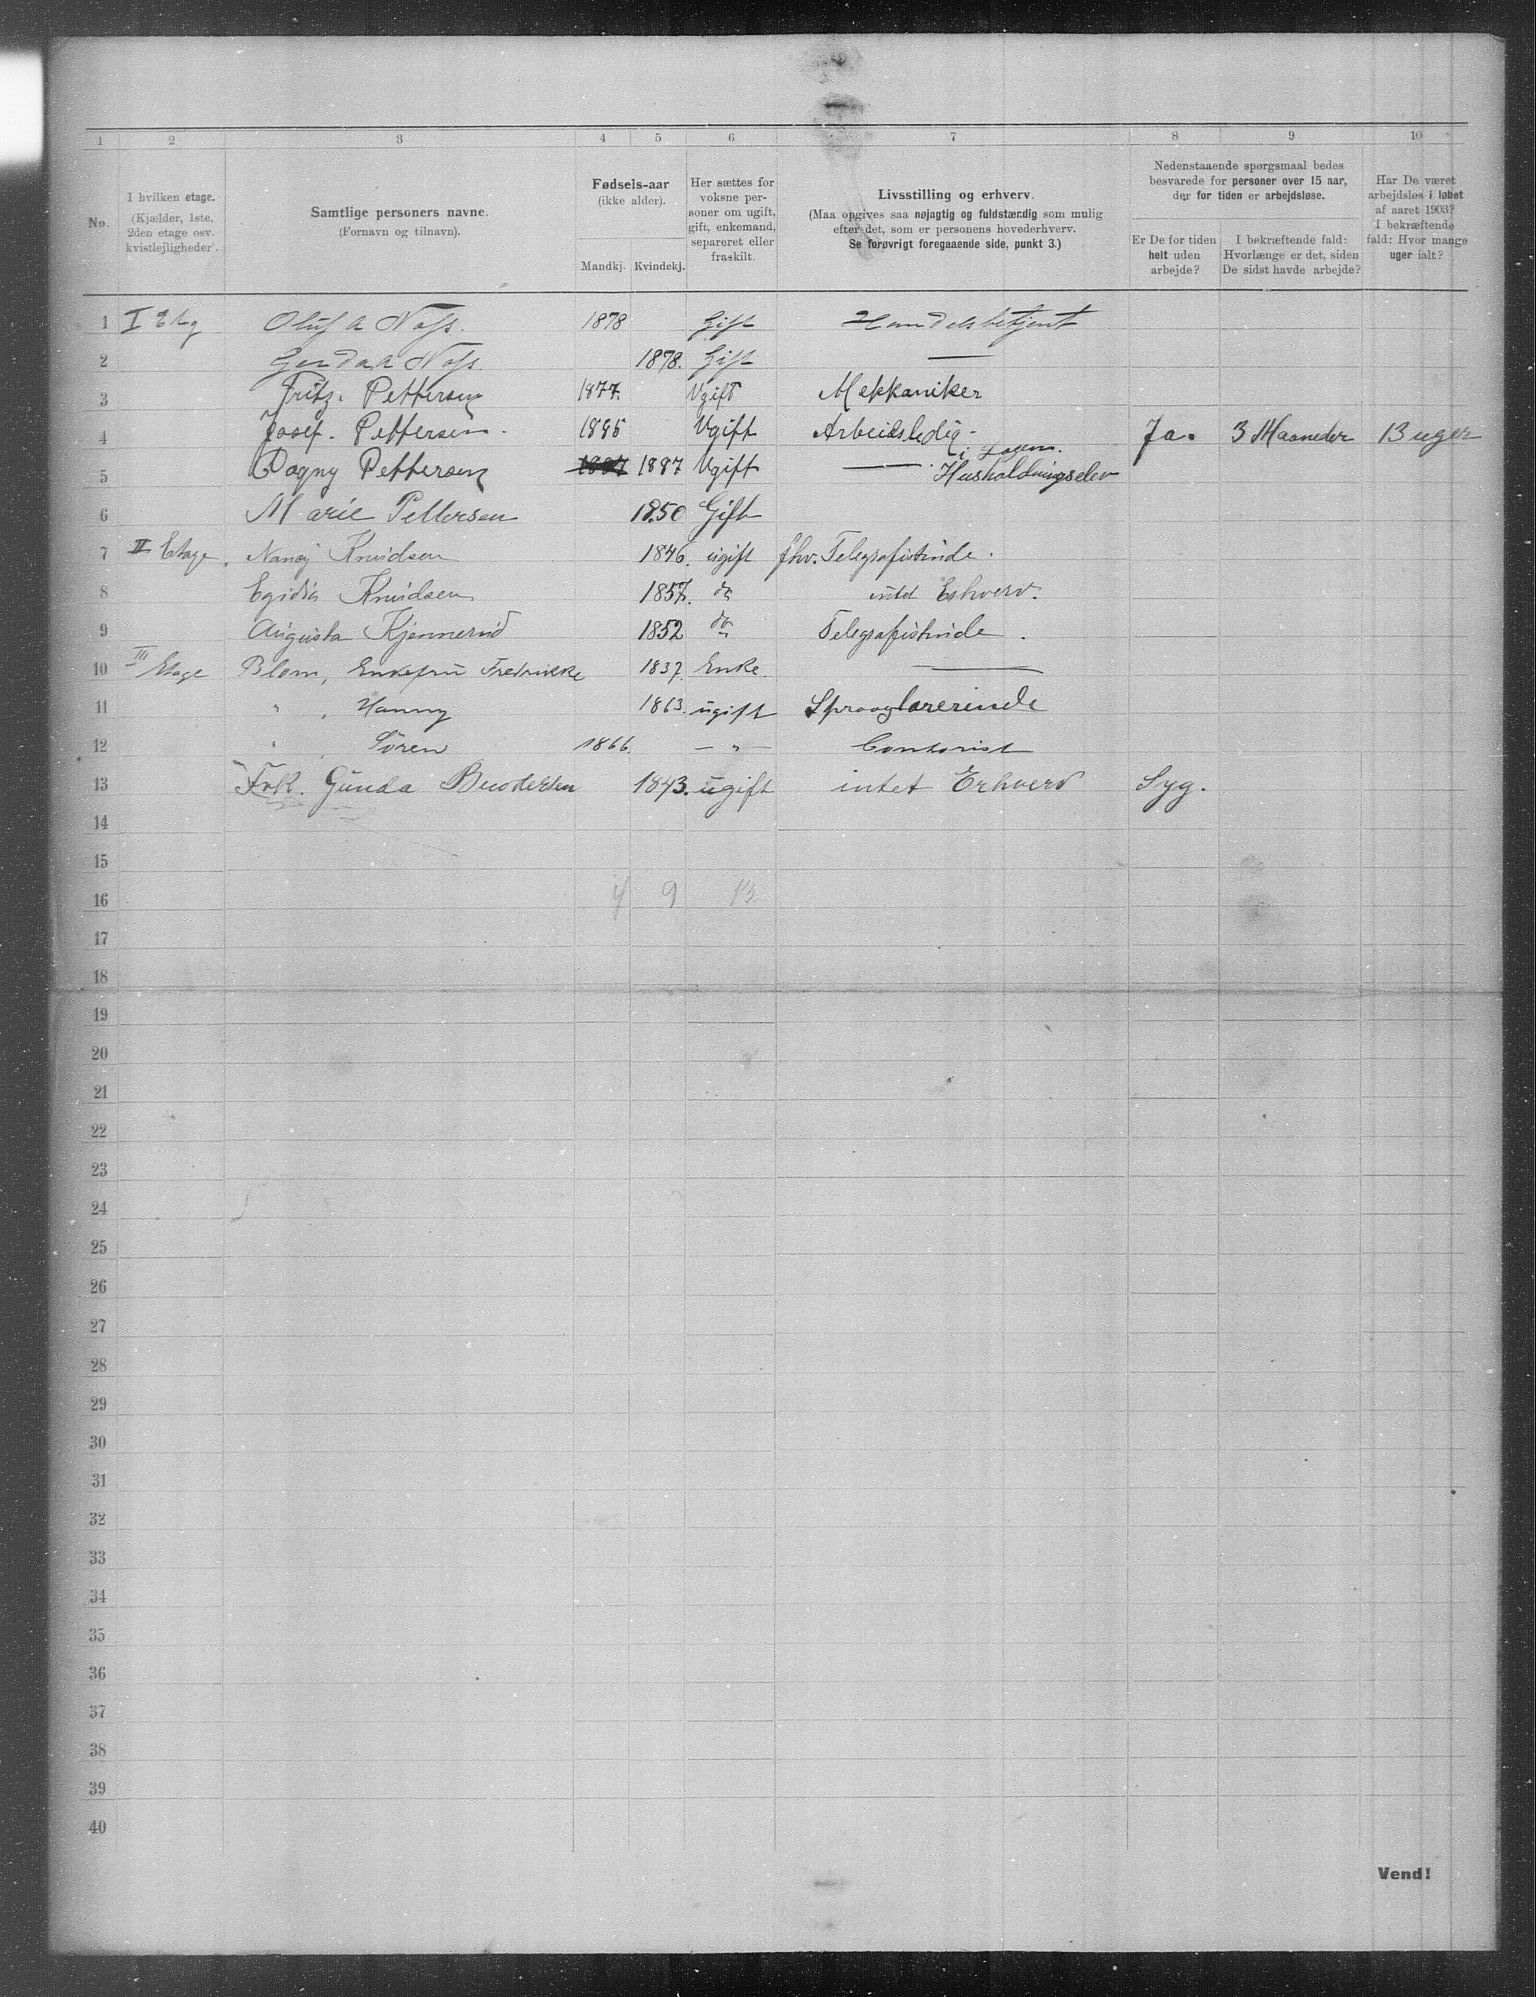 1 2 3 4 5 6 7 8 9 10
No.
I hvilken etage.
(Kjælder, 1ste,
2den etage osv.
kvistlejligheder).
Samtlige personers navne.
(Fornavn og tilnavn).
Fødsels-aar
(ikke alder).
Mandkj. Kvindekj.
Her sættes for
voksne per-
soner om ugift,
gift, enkemand,
separeret eller
fraskilt.
Livsstilling og erhverv.
(Maa opgives saa nøjagtig og fuldstændig som mulig
efter det, som er personens hovederhverv.
Se forøvrigt foregaaende side, punkt 3.)
Nedenstaaende spørgsmaal bedes
besvarede for personer over 15 aar,
der for tiden er arbejdsløse.
Er De for tiden
helt uden
arbejde?
I bekræftende fald:
Hvorlænge er det, siden
De sidst havde arbejde?
Har De været
arbejdsløs i løbet
af aaret 1903?
I bekræftende
fald: Hvor mange
uger ialt?
1 I Etg Oluf A Næss. 1878 Gift Handelsbetjent
2 Gerda A Næss. 1878. Gift —
3 Fritz. Pettersen 1877. Ugift Mekkaniker
4 Josef. Pettersen. 1885 Ugift Arbeidsledig. Ja. 3 Maaneder 13 uger
5 Dagny Pettersen 1887 1887 Ugift — Husholdningselev
6 Marie Pettersen 1850 Gift
7 II Etage. Nancy Knudsen 1846. ugift fhv. Telegrafistinde.
8 Egidia Knudsen 1857. do intet Erhverv.
9 Augusta Kjennerud 1852 do Telegrafistinde.
10 III Etage Blom, Enkefru Fredrikke 1837. Enke. —
11 " , Hanny 1863. ugift Sproglærerinde
12 " , Søren 1866. — " — Contorist
13 Frk. Gunda 1843. ugift intet Erhverv Syg.
14
15
16 4 9 13
17
18
19
20
21
22
23
24
25
26
27
28
29
30
31
32
33
34
35
36
37
38
39
40
Vend!